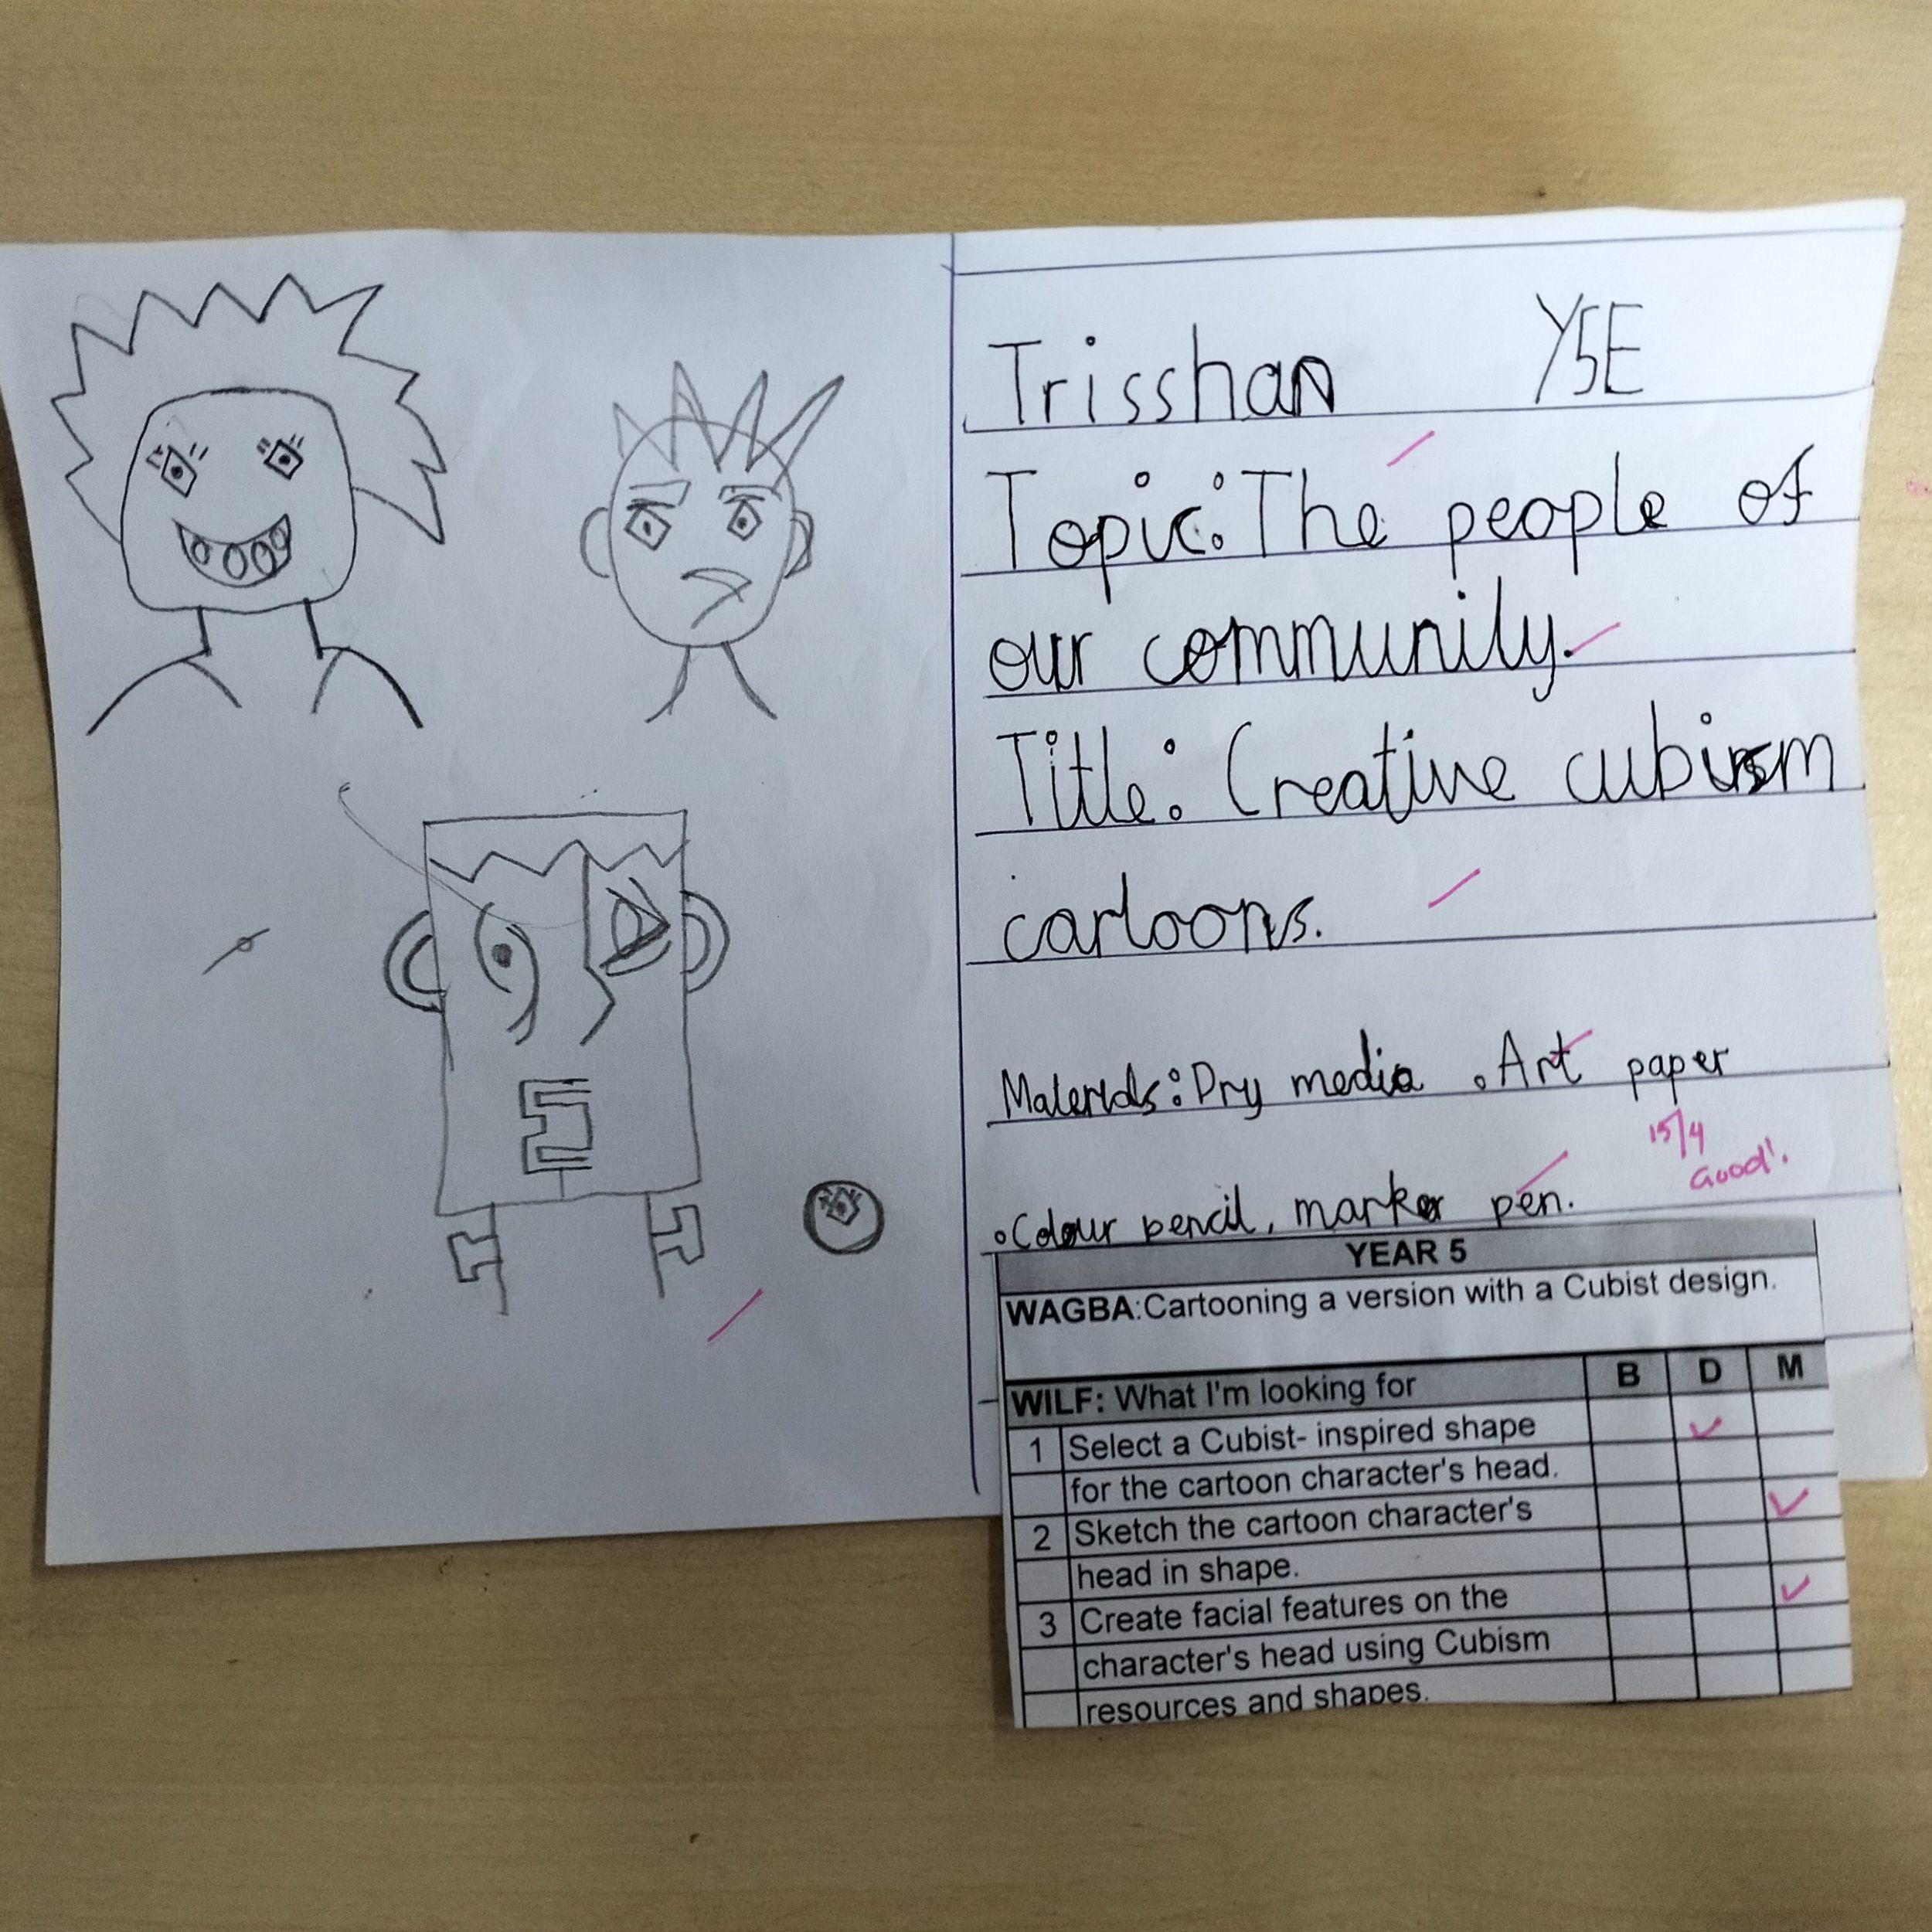 Trisshan Y5E
Topic: The people of
our community.
Title: Creative cubism
cartoons.
Materials: Dry media • Art paper
15/4
Good!
• Colour pencil, marker pen.
YEAR 5
WAGBA:Cartooning a version with a Cubist design.
WILF: What I'm looking for B D M
1 Select a Cubist- inspired shape
for the cartoon character's head.
2 Sketch the cartoon character's
head in shape.
3 Create facial features on the
character's head using Cubism
resources and shapes.